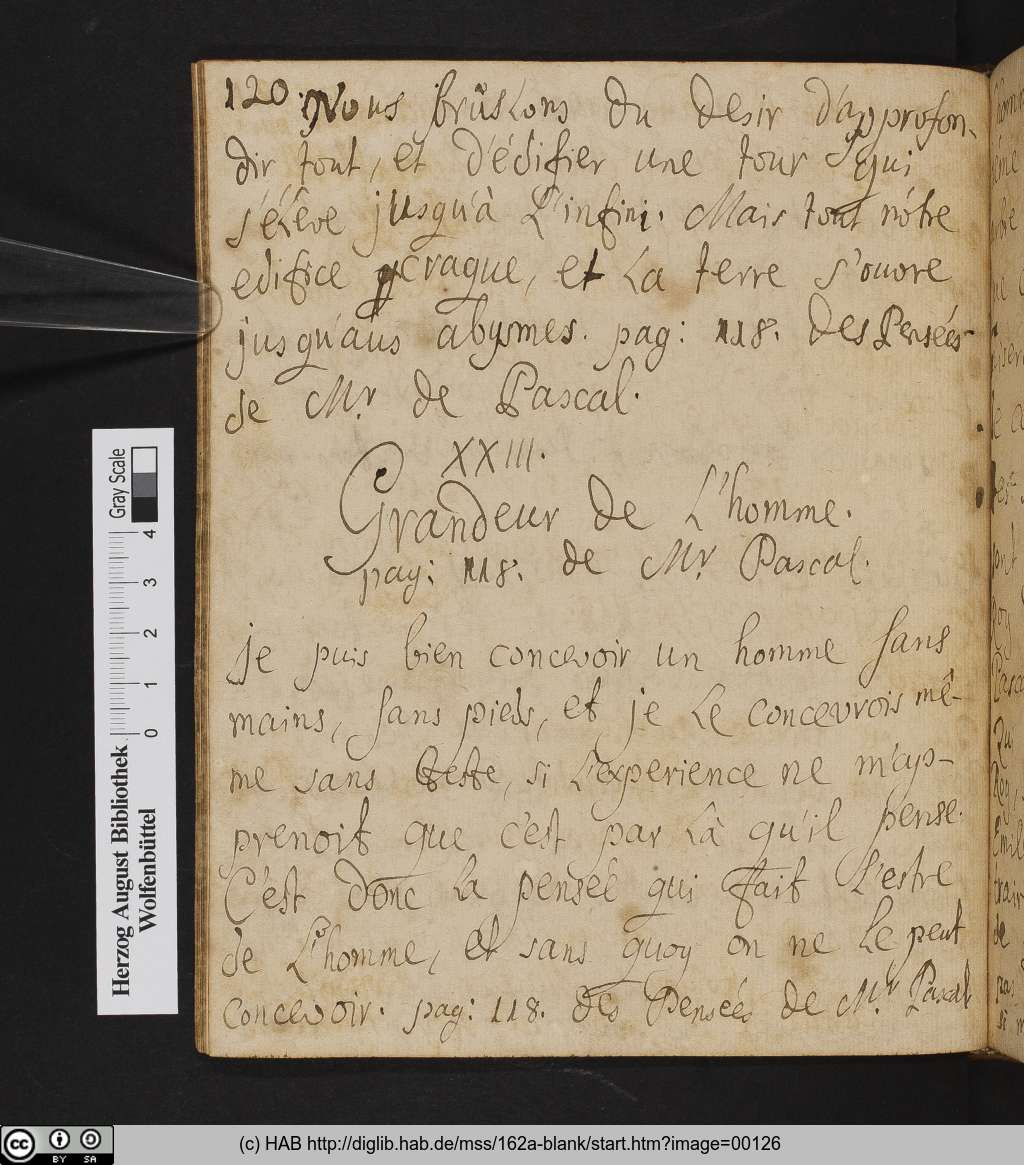 120. Nous brûslons du desir d'approfon-
dir tout, et d'édifier une tour qui
s'éléve jusqu'à l'infini. Mais tout nôtre
edifice craque, et la terre s'ouvre
jusqu'aus abysmes. pag: 118. des Pensées
de Mr. de Pascal.
XXIII.
Grandeur de L'homme.
pag: 118. de Mr. Pascal.
je puis bien concevoir un homme sans
mains, sans pieds, et je le concevrois mê-
me sans teste, si l'experience ne m'ap-
prenoit que c'est par là qu'il pense.
C'est donc la penseé qui fait l'estre
de l'homme, et sans quoy on ne le peut
concevoir. pag: 118. des Penseés de Mr. Pascal
Herzog August Bibliothek
Wolfenbüttel
Gray Scale
0 1 2 3 4
cc BY SA
(c) HAB http://diglib.hab.de/mss/162a-blank/start.htm?image=00126